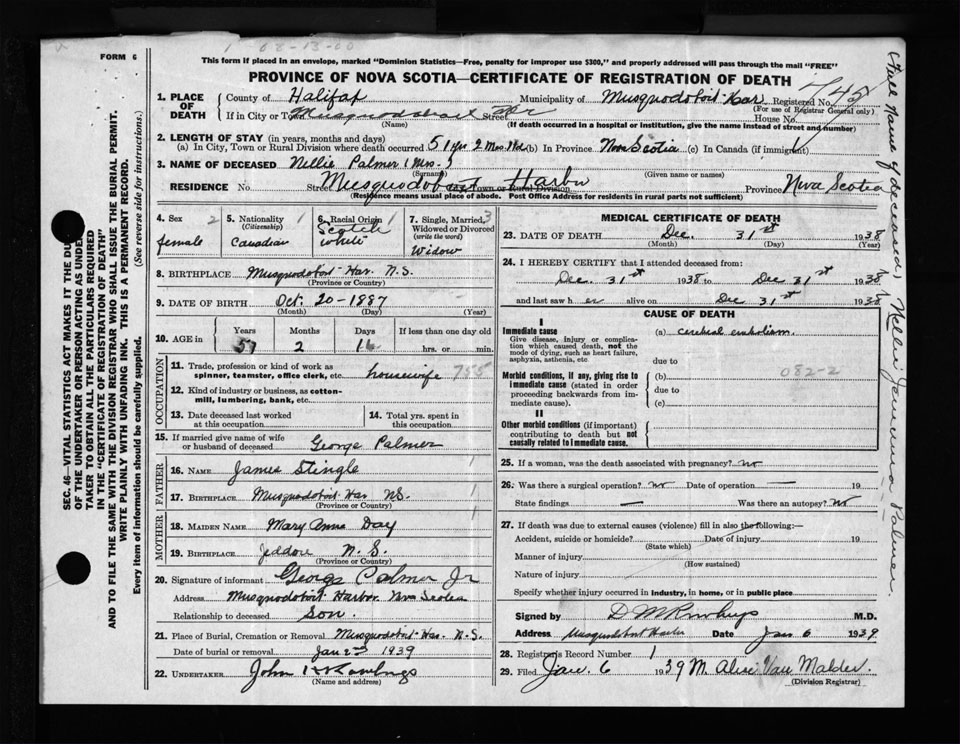 1 08-13-00
FORM 6
This form if placed in an envelope, marked "Dominion Statistics—Free, penalty for improper use $300," and properly addressed will pass through the mail "FREE"
PROVINCE OF NOVA SCOTIA—CERTIFICATE OF REGISTRATION OF DEATH
745
1. PLACE OF DEATH
County of Halifax Municipality of Musquodoboit Har Registered No.
(For use of Registrar General only)
If in City or Town Musquodoboit Hr Street House No.
(Name) (If death occurred in a hospital or institution, give the name instead of street and number)
2. LENGTH OF STAY (in years, months and days)
(a) In City, Town or Rural Division where death occurred 51 yrs 2 Mos. (b) In Province Nova Scotia (c) In Canada (if immigrant)
3. NAME OF DECEASED Nellie Palmer (Mrs.)
(Surname) (Given name or names)
RESIDENCE No. Street Musquodoboit Harbor Town or Rural Division Province Nova Scotia
(Residence means usual place of abode. Post Office Address for residents in rural parts not sufficient)
4. Sex 2
female
5. Nationality 1
(Citizenship)
Canadian
6. Racial Origin 1
Scotch
white
7. Single, Married, 3
Widowed or Divorced
(write the word)
Widow
8. BIRTHPLACE Musquodoboit Har. N.S.
(Province or Country)
9. DATE OF BIRTH Oct. 20-1887
(Month) (Day) (Year)
10. AGE in
Years Months Days If less than one day old
51 2 hrs. or min.
OCCUPATION
11. Trade, profession or kind of work as
spinner, teamster, office clerk, etc. housewife 755
12. Kind of industry or business, as cotton-
mill, lumbering, bank, etc.
13. Date deceased last worked
at this occupation
14. Total yrs. spent in
this occupation
15. If married give name of wife
or husband of deceased George Palmer
FATHER
16. NAME James Stingle 1
17. BIRTHPLACE Musquodoboit Har. NS. 1
(Province or Country)
MOTHER
18. MAIDEN NAME Mary Anne Day 1
19. BIRTHPLACE Jeddore N.S.
(Province or Country)
20. Signature of informant George Palmer Jr
Address Musquodoboit Harbor Nova Scotia
Relationship to deceased Son.
21. Place of Burial, Cremation or Removal Musquodoboit Har. N.S.
Date of burial or removal Jan 2nd 1939
22. UNDERTAKER John Rawlings
(Name and address)
MEDICAL CERTIFICATE OF DEATH
23. DATE OF DEATH Dec. 31st 1938
(Month) (Day) (Year)
24. I HEREBY CERTIFY that I attended deceased from:
Dec. 31st 1938 to Dec 31st 1938
and last saw her alive on Dec 31st 1938
CAUSE OF DEATH
I
Immediate cause (a) cerebral embolism.
Give disease, injury or complica-
tion which caused death, not the
mode of dying, such as heart failure,
asphyxia, asthenia, etc due to
082-2
Morbid conditions, if any, giving rise to (b)
immediate cause (stated in order due to
proceeding backwards from im-
mediate cause). (c)
II
Other morbid conditions (if important)
contributing to death but not
causally related to immediate cause.
25. If a woman, was the death associated with pregnancy? no
26. Was there a surgical operation? no Date of operation — 19
State findings — Was there an autopsy? no
27. If death was due to external causes (violence) fill in also the following:—
Accident, suicide or homicide? Date of injury 19
(State which)
Manner of injury
(How sustained)
Nature of injury
Specify whether injury occurred in industry, in home, or in public place
Signed by M.D.
Address Musquodoboit Harbor Date Jan 6 1939
28. Registrars Record Number 1
29. Filed Jan. 6 1939 M. Alice Van Malder.
(Division Registrar)
SEC. 46—VITAL STATISTICS ACT MAKES IT THE DUTY
OF THE UNDERTAKER OR PERSON ACTING AS UNDER-
TAKER TO OBTAIN ALL THE PARTICULARS REQUIRED
IN THE "CERTIFICATE OF REGISTRATION OF DEATH"
AND TO FILE THE SAME WITH THE DIVISION REGISTRAR WHO SHALL ISSUE THE BURIAL PERMIT.
WRITE PLAINLY WITH UNFADING INK. THIS IS A PERMANENT RECORD.
Every item of information should be carefully supplied. (See reverse side for instructions.)
(Full Name of deceased, Nellie Jemima Palmer.